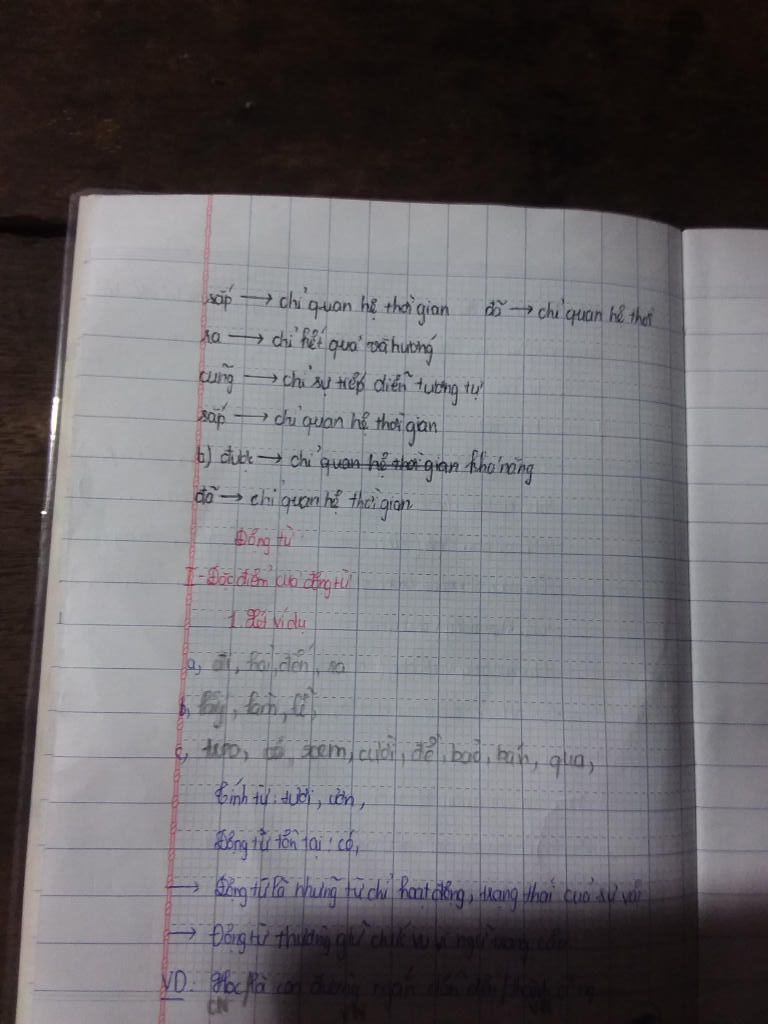 sắp → chỉ quan hệ thời gian đã → chỉ quan hệ thời
ra → chỉ kết quả và hướng
cũng → chỉ sự tiếp diễn tương tự
sắp → chỉ quan hệ thời gian
b) được → chỉ quan hệ thời gian khả năng
đã → chỉ quan hệ thời gian
Động từ
I - Đặc điểm của động từ
1. Xét ví dụ
a, đi, hỏi, đến, ra
b, lấy, làm, lễ,
c, treo, có, xem, cười, để, bảo, bán, qua,
Tính từ: tươi, ươn,
Động từ tồn tại: có,
→ Động từ là những từ chỉ hoạt động, trạng thái của sự vật
→ Động từ thường giữ chức vụ vị ngữ trong câu
VD: Học là con đường ngắn
CN